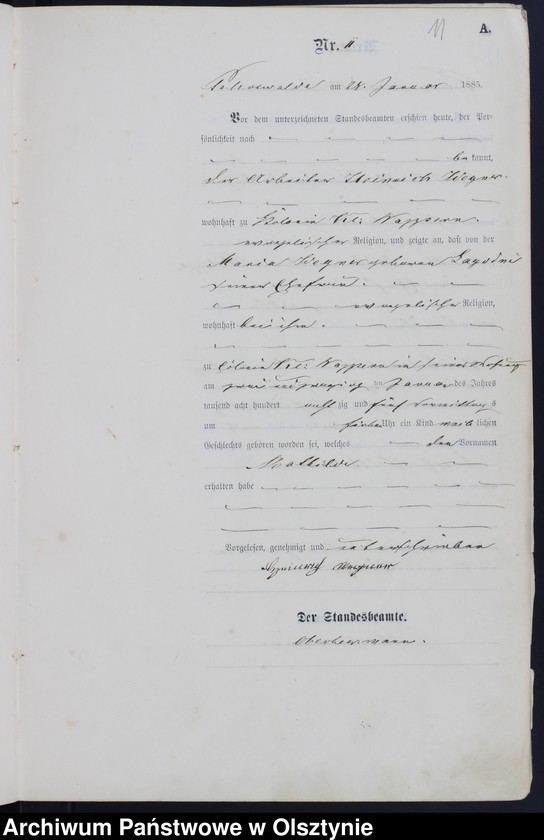 11
A.
Nr. 11
am 24. Januar 1885.
Vor dem unterzeichneten Standesbeamten erschien heute, der Per-
sönlichkeit nach
bekannt,
der Arbeiter Heinrich Wegner
wohnhaft zu Kolonie Nappern
evangelischer Religion, und zeigte an, daß von der
Maria Wegner geborenen
seiner Ehefrau
evangelischer Religion,
wohnhaft bei ihm
zu Colonie Nappern in seiner Wohnung
am zwei und zwanzigsten Januar des Jahres
tausend acht hundert achtzig und fünf Vormittags
um Uhr ein Kind weiblichen
Geschlechts geboren worden sei, welches den Vornamen
Mathilde
erhalten habe
Vorgelesen, genehmigt und unterschrieben
Heinrich Wegner
Der Standesbeamte.
Archiwum Państwowe w Olsztynie